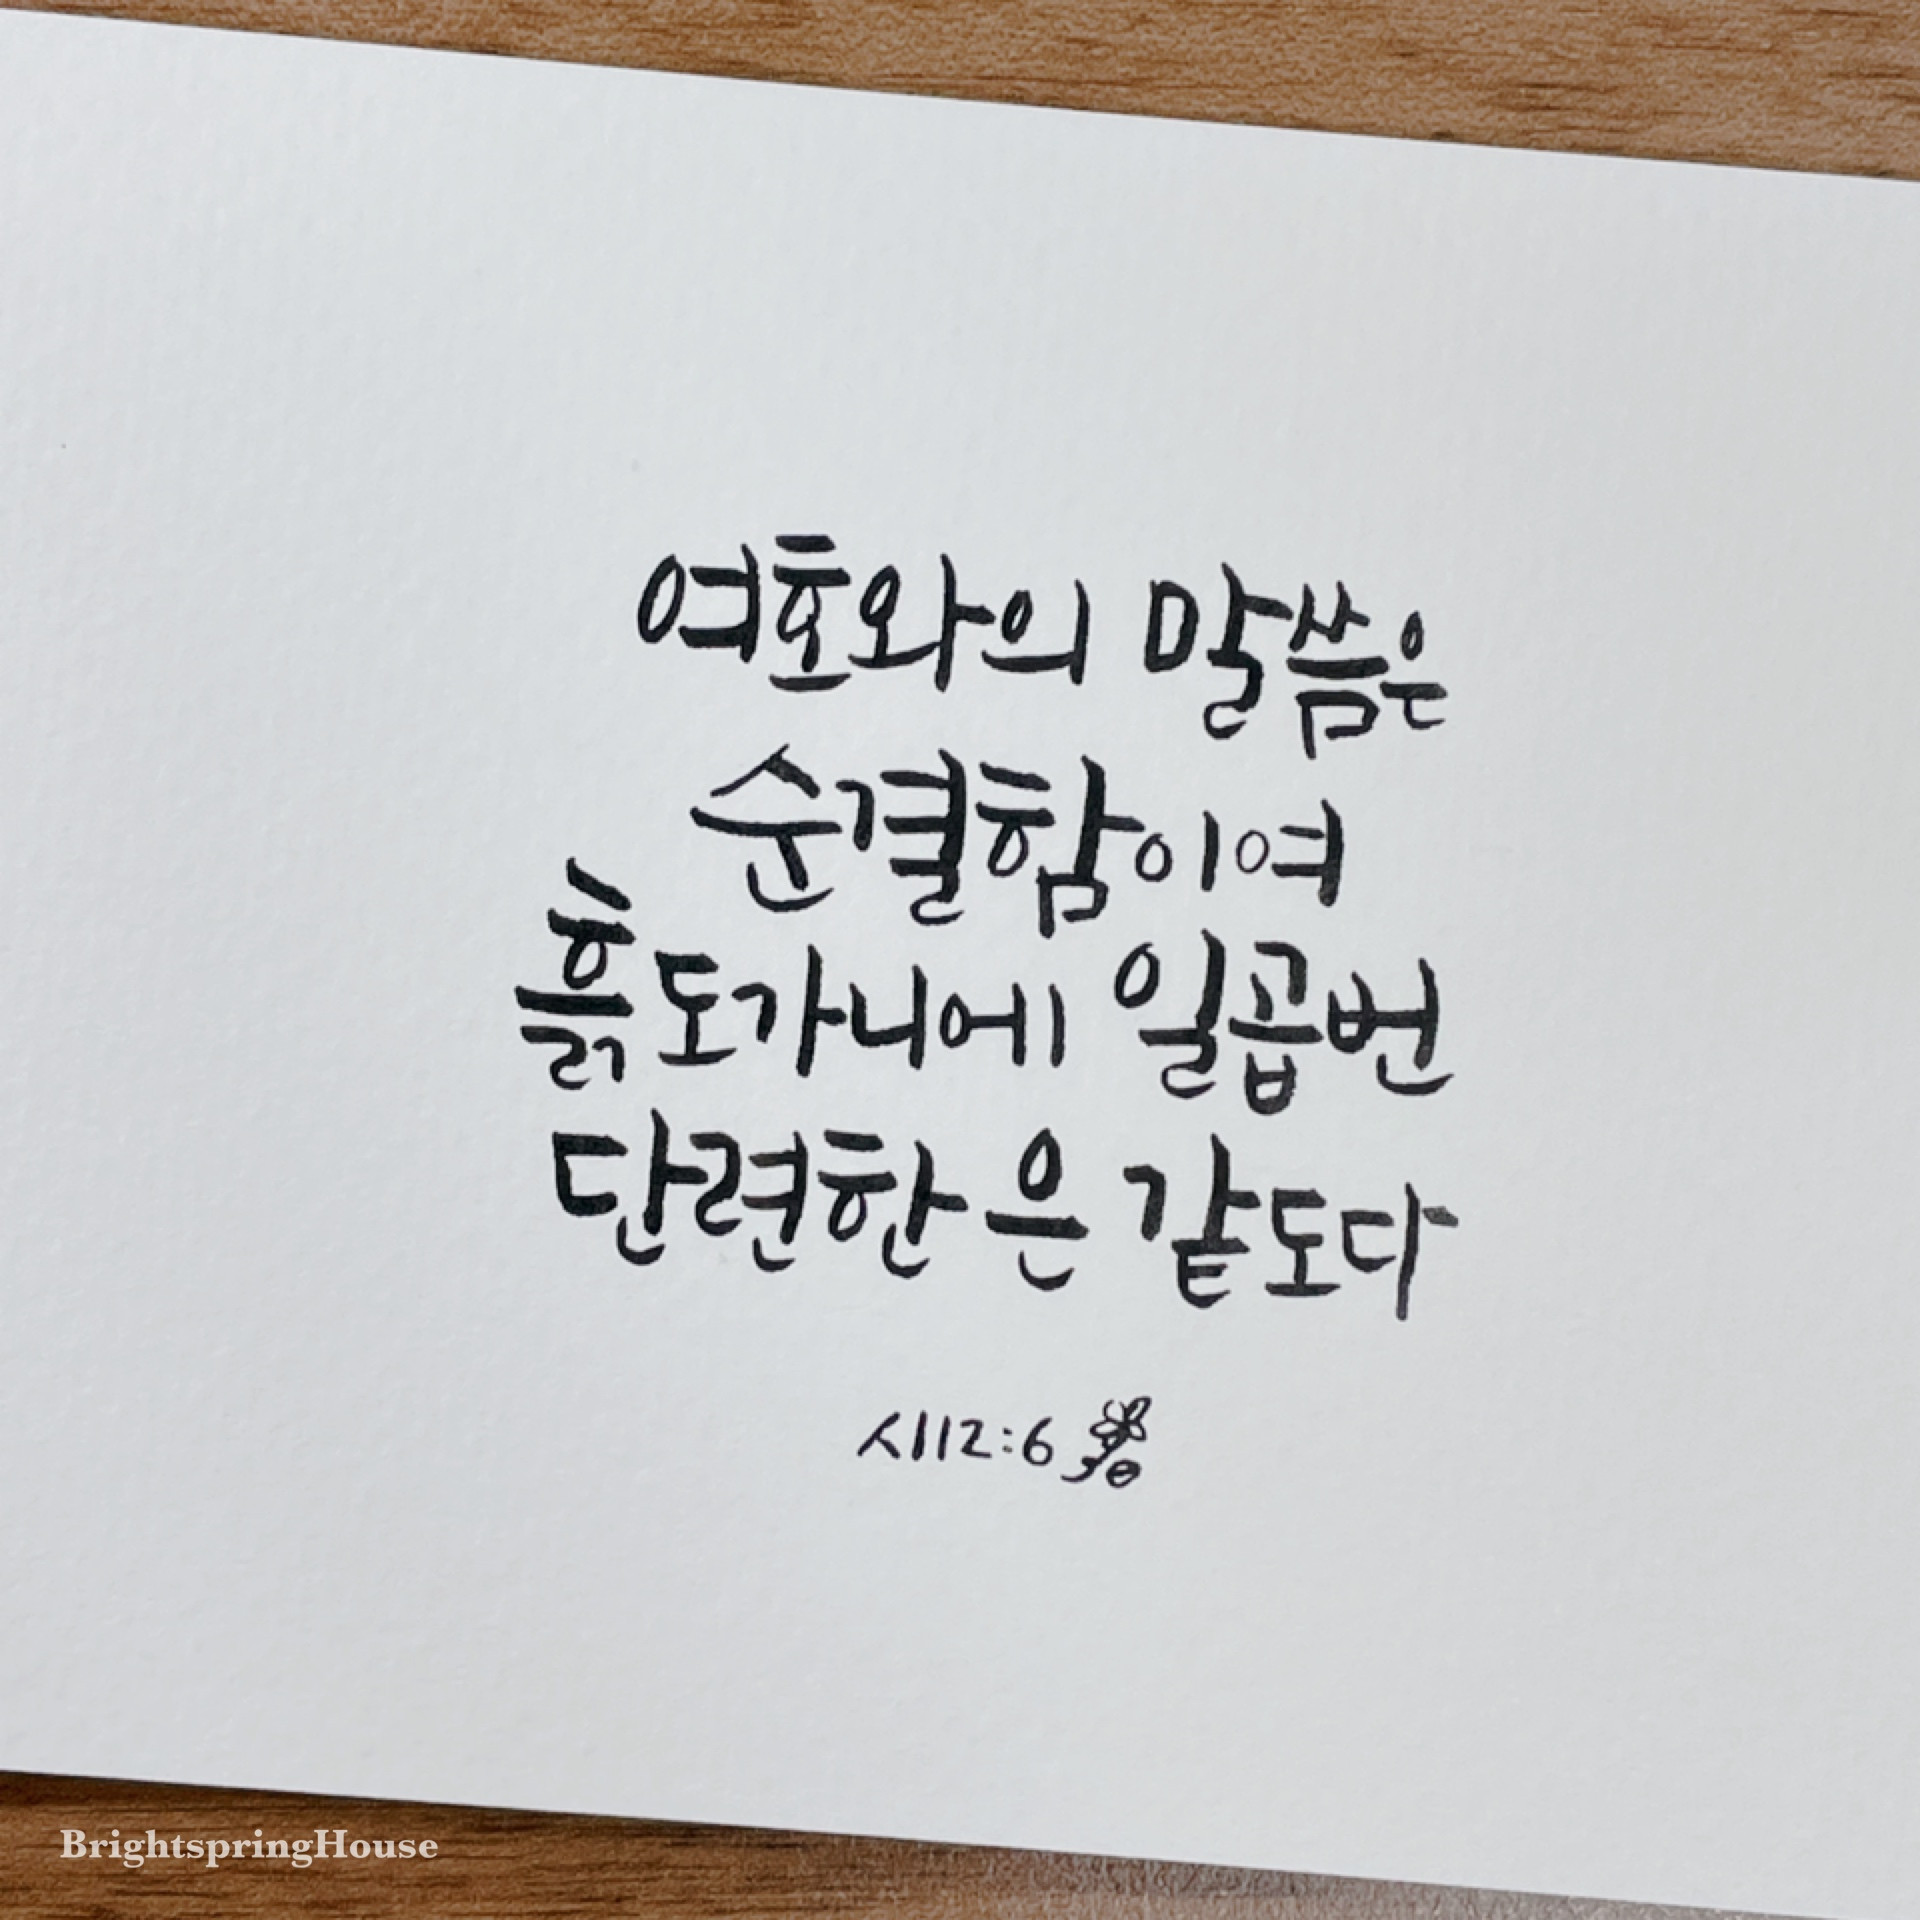 여호와의 말씀은
순결함이여
흙 도가니에 일곱번
단련한 은 같도다
시12:6
BrightspringHouse